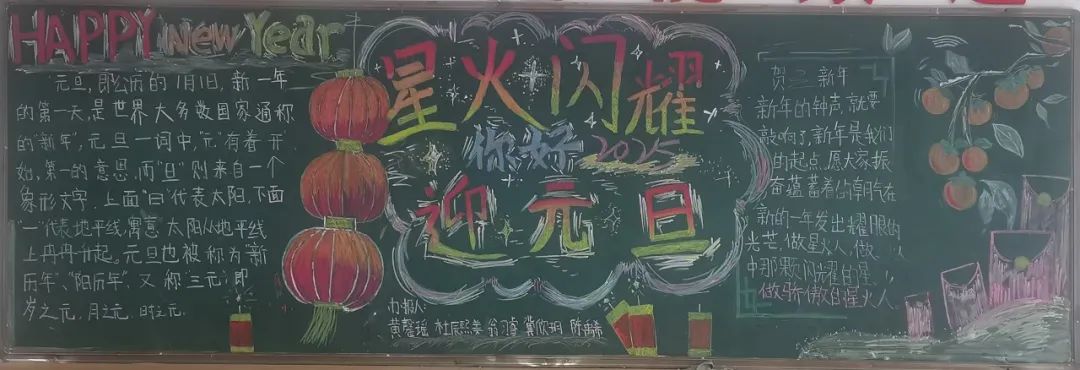 HAPPY New Year
元旦，即公历的1月1日，新一年
的第一天，是世界大多数国家通称
的“新年”，元旦一词中，“元”有着“开
始，第一的意思，而“旦”则来自一个
象形文字，上面“日”代表太阳，下面
“一”代表地平线，寓意太阳从地平线
上冉冉升起。元旦也被称为“新
历年”、“阳历年”，又称“三元”，即
岁之元，月之元，时之元.
星火闪耀
你好 2025
迎元旦
办报人：
杜辰熙
贺 新年
新年的钟声，就要
敲响了，新年是我们
的起点，愿大家振
奋蕴蓄着的朝气在
新的一年发出耀眼的
光芒，做星火人，做
中那颗闪耀的星，
做骄傲的星火人